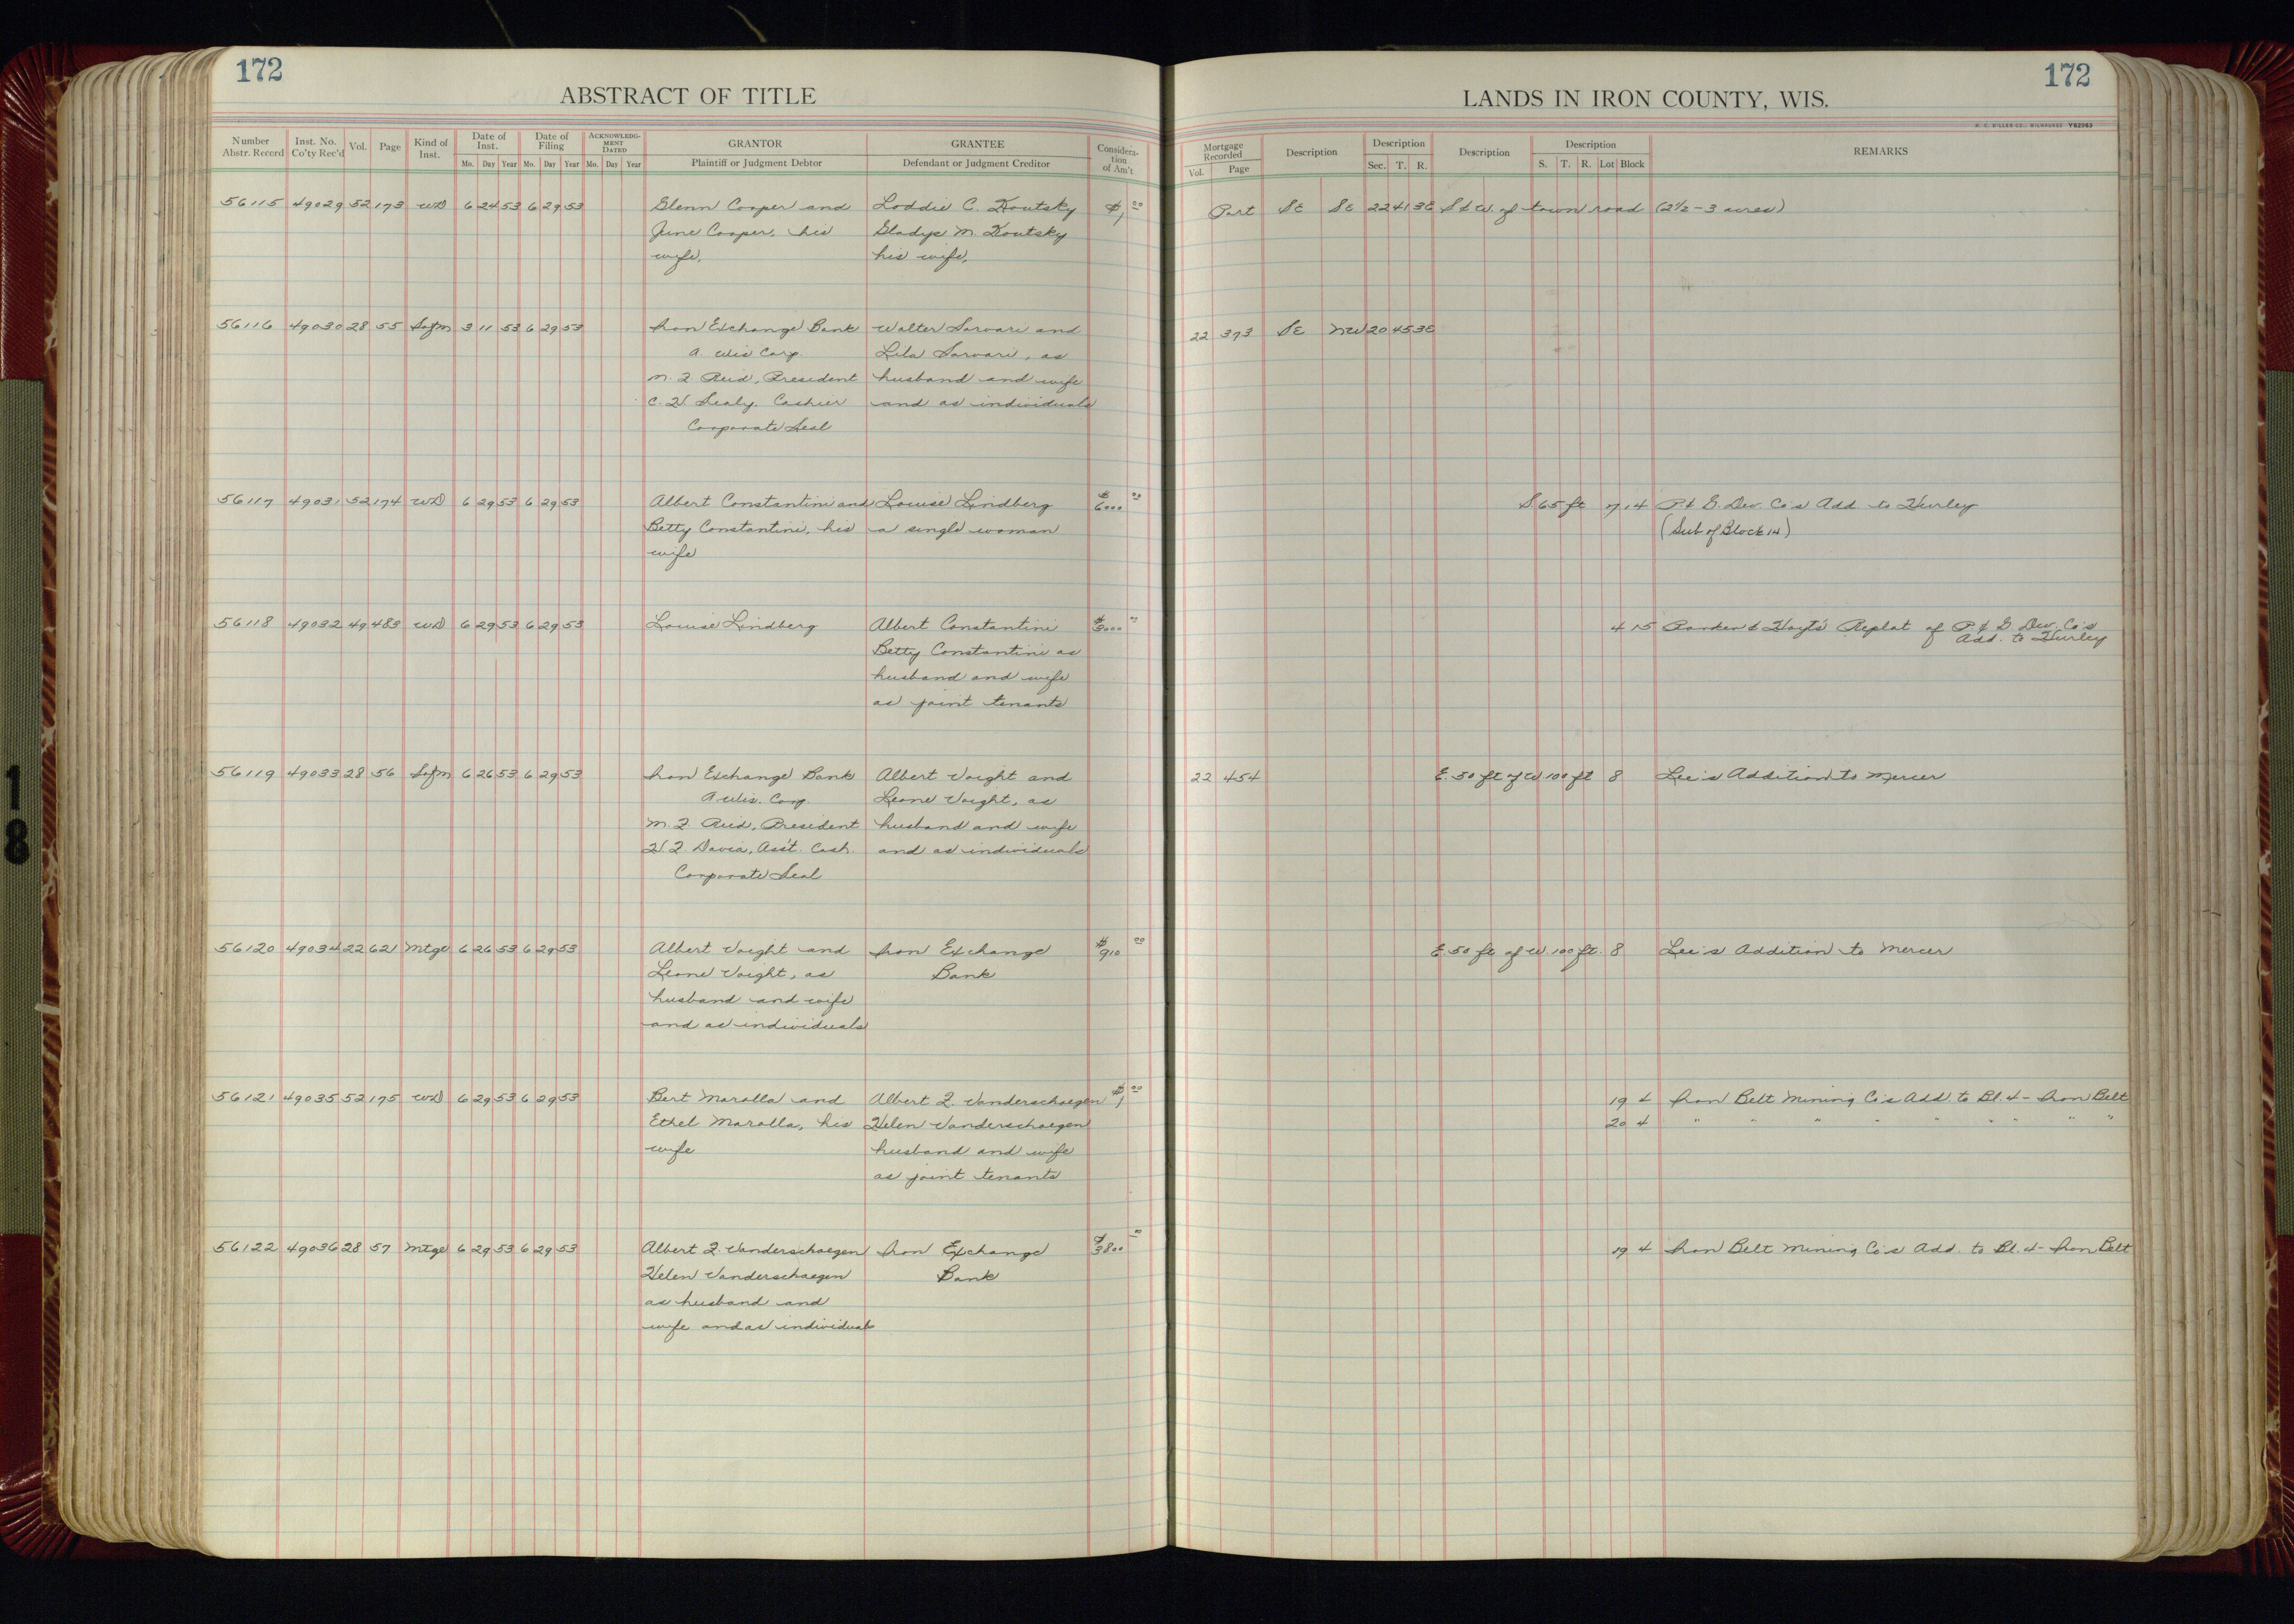 172
ABSTRACT OF TITLE
Number Abstr. Record
Inst. No. Co'ty Rec'd
Vol.
Page
Kind of Inst.
Date of Inst.
Mo. Day Year
Date of Filing
Mo. Day Year
ACKNOWLEDGMENT DATED
Mo. Day Year
GRANTOR
Plaintiff or Judgment Debtor
GRANTEE
Defendant or Judgment Creditor
Consideration of Am't
56115 49029 52 173 WD 6 24 53 6 29 53 Glenn Cooper and Loddie C. Koutsky $1 00
June Cooper, his Gladys M. Koutsky
wife, his wife,
56116 49030 28 55 Sofm 3 11 53 6 29 53 Iron Exchange Bank Walter Sarvari and
A. Wis Corp. Lila Sarvari, as
M. F. Reid, President husband and wife
C. H. Sealy, Cashier and as individuals
Corporate Seal
56117 49031 52 174 WD 6 29 53 6 29 53 Albert Constantini and Louise Lindberg $6000 00
Betty Constantini, his a single woman
wife
56118 49032 49 483 WD 6 29 53 6 29 53 Louise Lindberg Albert Constantini 00
Betty Constantini as
husband and wife
as joint tenants
56119 49033 28 56 Sofm 6 26 53 6 29 53 Iron Exchange Bank Albert Voight and
A Wis. Corp. Leone Voight, as
M. F. Reid, President husband and wife
H. F. Davia, Ass't. Cash. and as individuals
Corporate Seal
56120 49034 22 621 Mtge 6 26 53 6 29 53 Albert Voight and Iron Exchange $910 00
Leone Voight, as Bank
husband and wife
and as individuals
56121 49035 52 175 WD 6 29 53 6 29 53 Bert Marolla and Albert F. Vanderschaegen $1 00
Ethel Marolla, his Helen Vanderschaegen
wife husband and wife
as joint tenants
56122 49036 28 57 Mtge 6 29 53 6 29 53 Albert F. Vanderschaegen Iron Exchange $3800 00
Helen Vanderschaegen Bank
as husband and
wife and as individuals
172
LANDS IN IRON COUNTY, WIS.
H. C. MILLER CO., MILWAUKEE Y82963
Mortgage Recorded
Vol. Page
Description
Description
Sec. T. R.
Description
Description
S. T. R. Lot Block
REMARKS
Part SE SE 22 41 3E S & W. of town road (2½-3 acres)
22 373 SE NW 20 45 3E
S 65 ft 7 14 P. & G. Dev. Co's Add. to Hurley
(Sub of Block 14)
4 15 Ronken & Hoyt's Replat of P. & G. Dev. Co's
Add. to Hurley
22 454 E. 50 ft of W 100 ft 8 Lee's Addition to Mercer
E. 50 ft of W. 100 ft. 8 Lee's Addition to Mercer
19 4 Iron Belt Mining Co's Add. to Bl. 4 - Iron Belt
20 4 " " " " " " " " "
19 4 Iron Belt Mining Co's Add. to Bl. 4 - Iron Belt
18